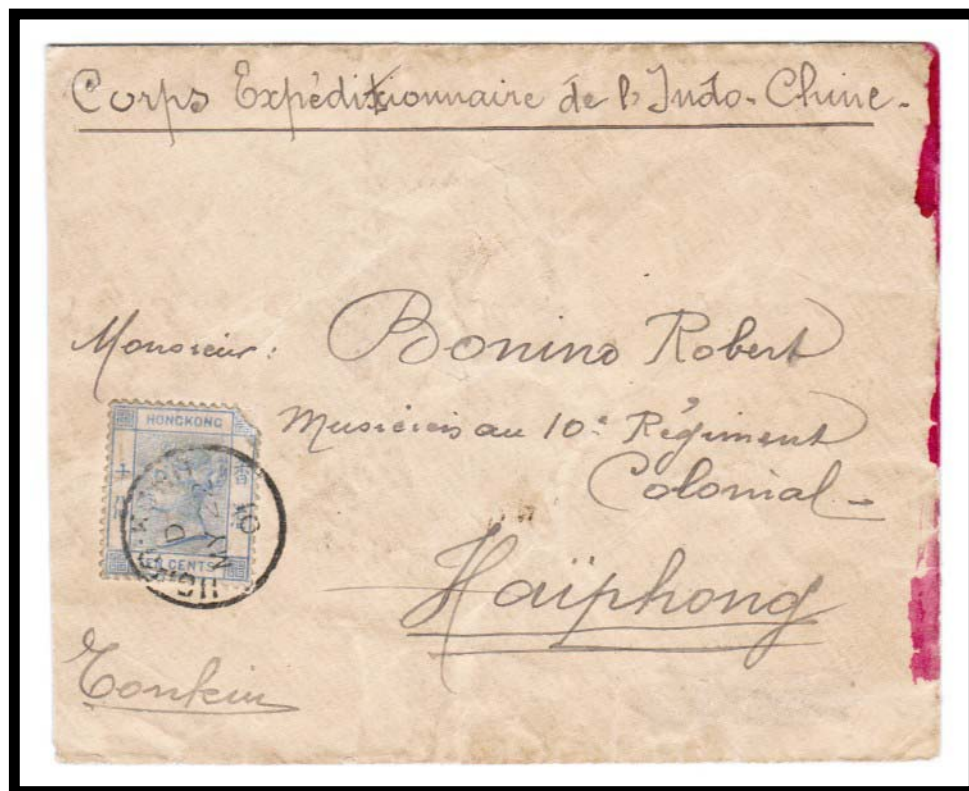 Corps Expéditionnaire de l'Indo-Chine.
Monsieur: Bonino Robert
Musicien au 10e Régiment
Colonial
Haïphong
Tonkin
HONGKONG
CENTS
D
MY